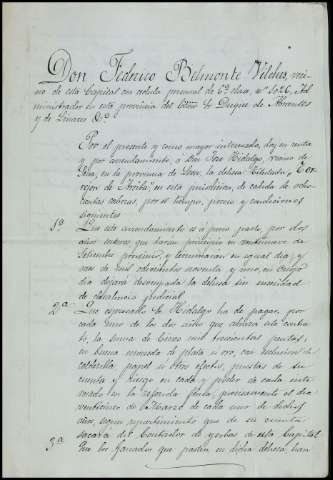 Don Federico Belmonte Vilches, veci-
no de esta Capital con cédula personal de 6ª clase, nº 5026, Ad-
ministrador en esta provincia del Excmo Sr Duque de Abrantes
y de Linares &ª
Por el presente y como mayor interesado, doy en renta
y por arrendamiento, a Don José Hidalgo, vecino de
en la provincia de la dehesa titulada "Tor-
rejon de Arriba" en esta jurisdiccion, de cabida de ocho-
cientas cabezas, por el tiempo, precio y condiciones
siguientes
1ª Que este arrendamiento es á puro pasto, por dos
años enteros que haran principio en veintinueve de
Setiembre proximo, y terminaran en igual dia y
mes de mil ochocientos noventa y uno, en cuyo
dia dejará desocupada la dehesa sin necesidad
de desahucio judicial
2ª Que espresado Sr Hidalgo ha de pagar, por
cada uno de los dos años que abraza este contra-
to, la suma de mil trescientas pesetas,
en buena moneda de plata ú oro, con exclusion de
calderilla papel ú otros efectos, puestas de su
cuenta y riesgo en casa y poder de cada inte-
resado en la referida precisamente el dia
veinticinco de Marzo de cada uno de dichos
años, segun repartimiento que de su cuenta
sacará del Contador de yerbas de esta Capital
3ª Que los ganados que pasten en dicha dehesa han